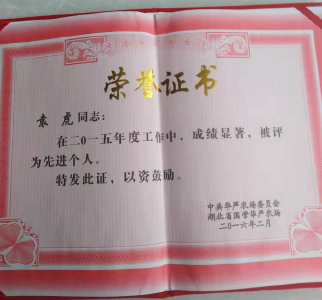 荣誉证书
袁 虎同志：
在二0一五年度工作中，成绩显著，被评
为先进个人。
特发此证，以资鼓励。
中共华严农场委员会
湖北省国营华严农场
二0一六年二月